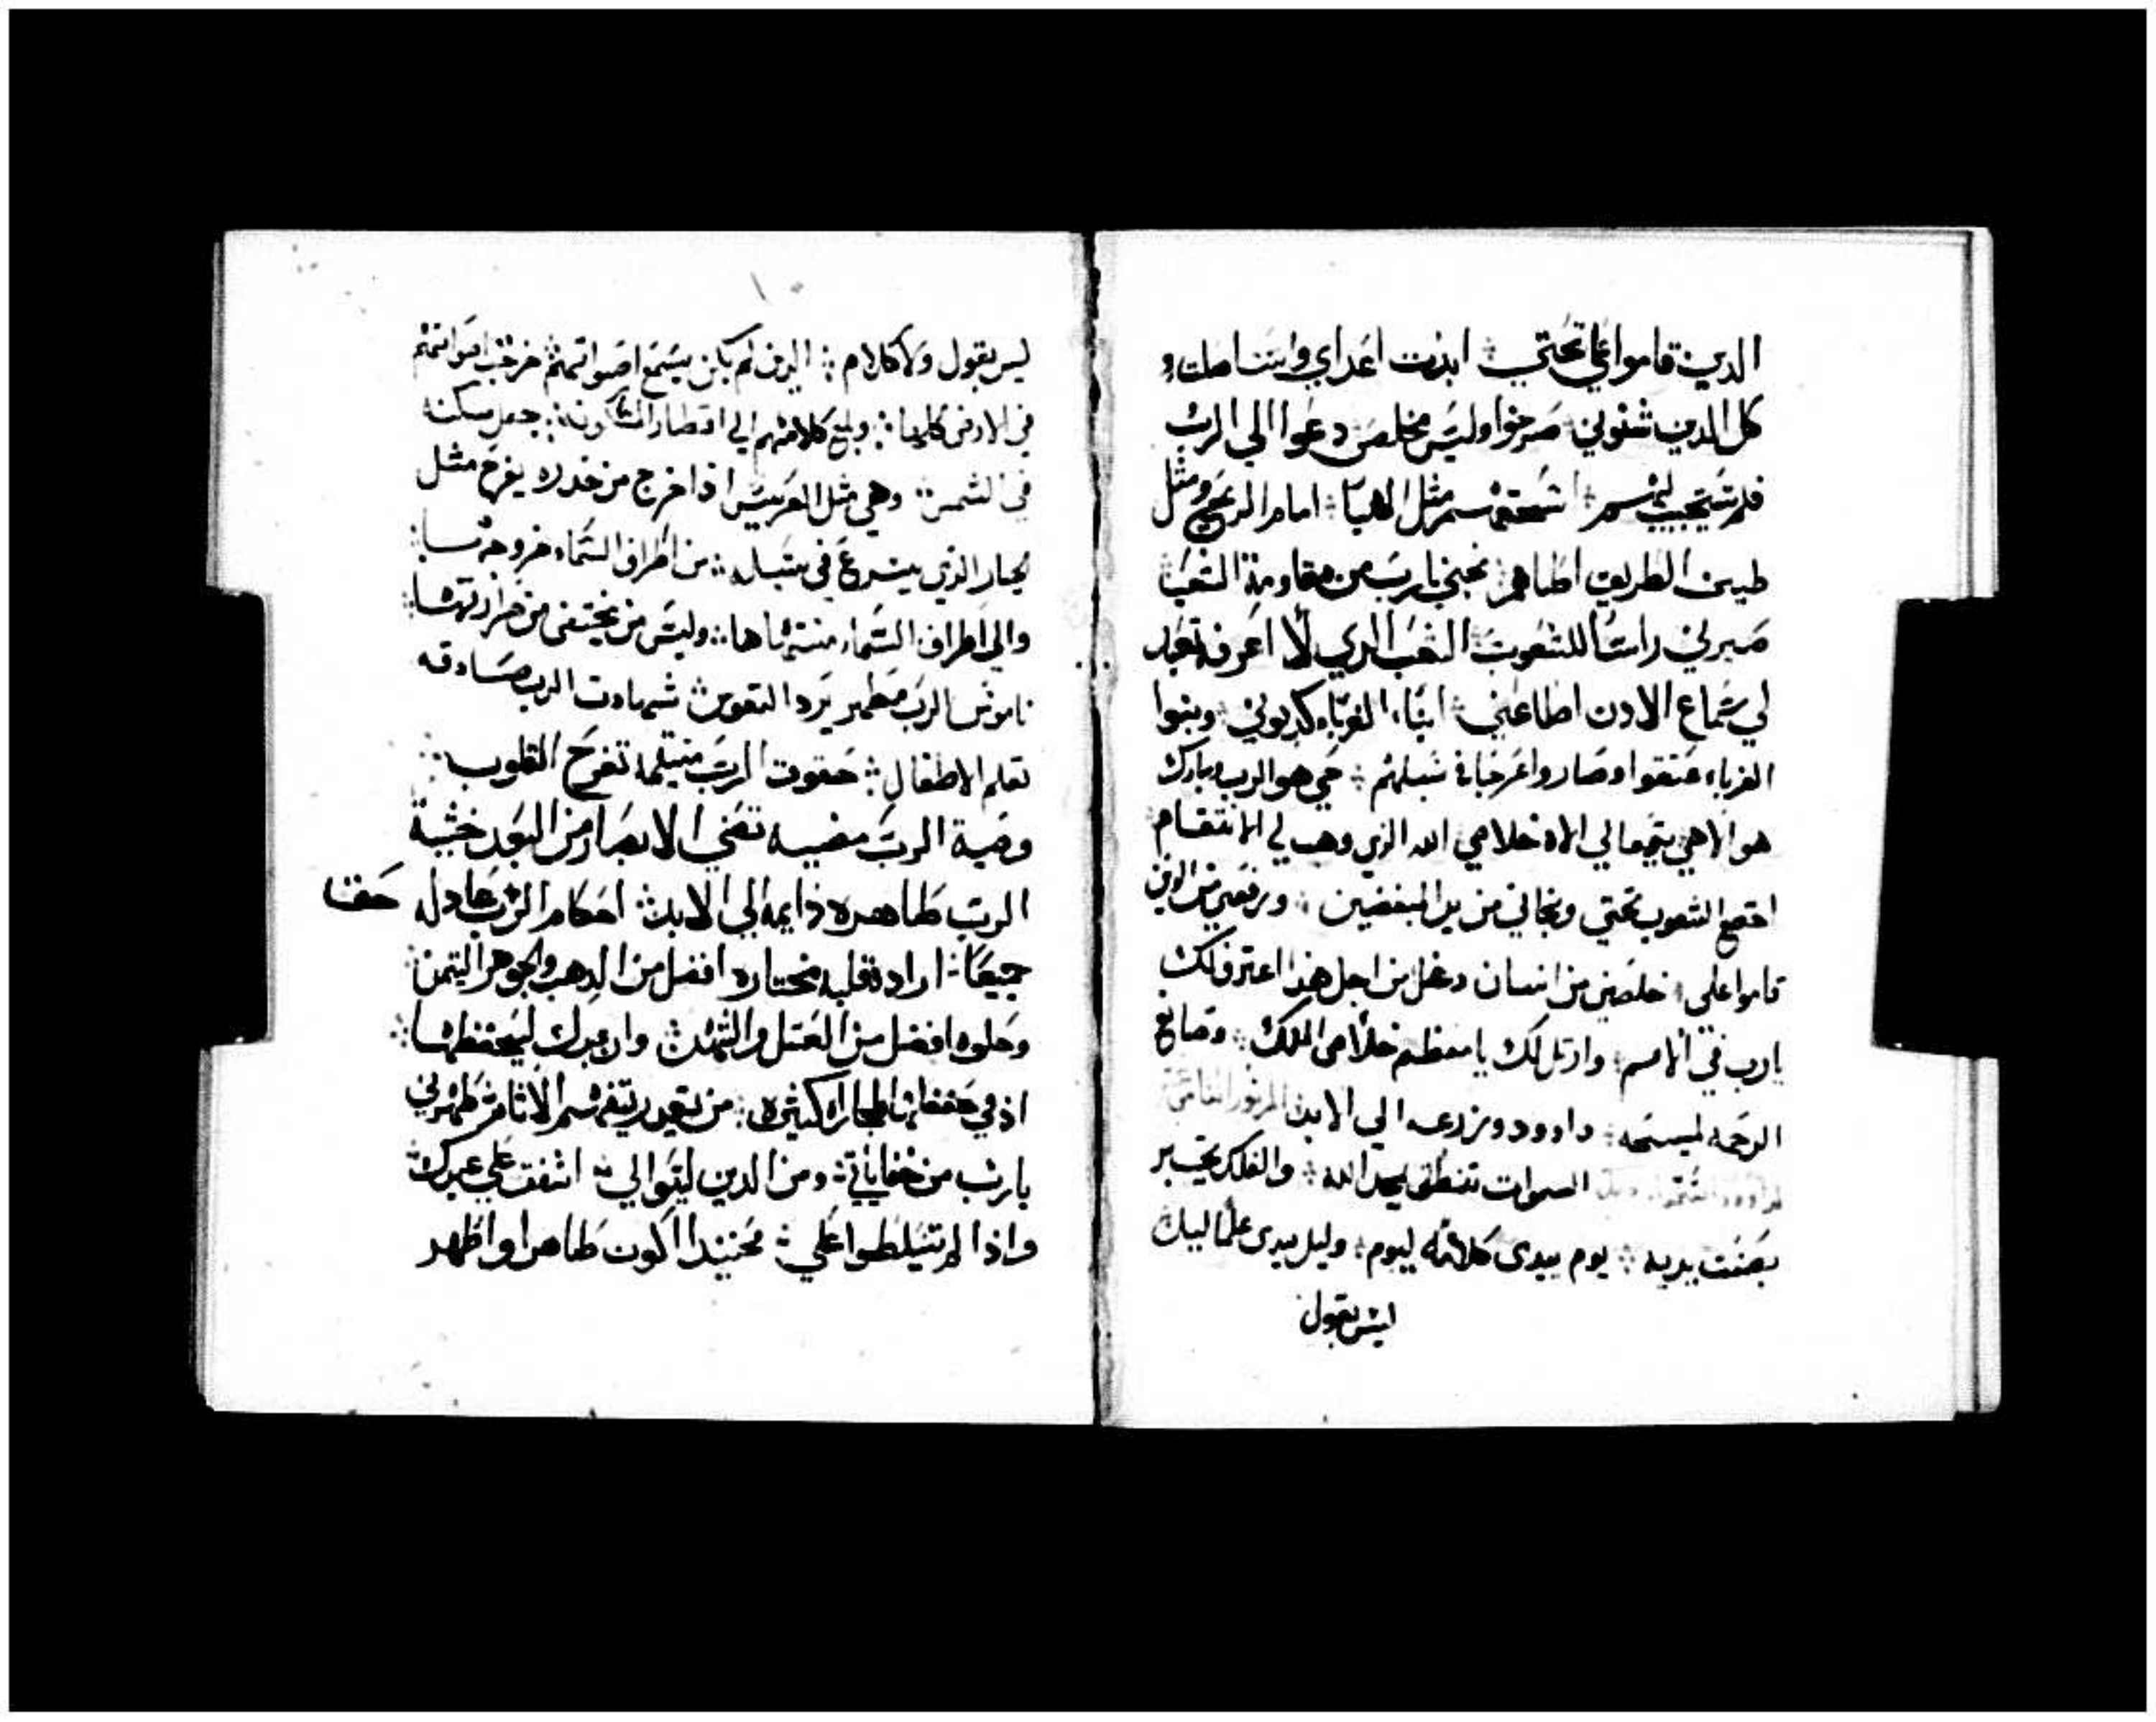 الدين قاموا علي تحتي ܀ ابدت اعداي واستاصلت و
كل الدين شنوني صرخوا وليس مخلص دعوا الي الرب
فلم يستجيب لهم ܀ اسحقهم مثل الهبا ܀ امام الريح ومثل
طين الطريق اطاهم ܀ نجني يارب من مقاومة الشعب
صيرني راسا للشعوب الشعب الدي لا اعرفه تعبد
لي سماع الادن اطاعني ܀ ابناء الغرباء كدبوني وبنوا
الغرباء عتقوا وصاروا عرجا في سبلهم ܀ حي هو الرب وبارك
هو الاهي يتعالي الاه خلاصي الله الذي وهب لي الانتقام
اخضع الشعوب تحتي ونجاني من يد المبغضين ܀ ويرفعني من الذين
قاموا علي ܀ خلصني من انسان دغل من اجل هذا اعترف لك
يارب في الامم ܀ وارتل لك يا معظم خلاص الملك ܀ وصانع
الرحمه لمسيحه ܀ داوود وزرعه الي الابد المزمور الثامن
السموات تنطق بمجد الله ܀ والفلك يخبر
بصنت يديه ܀ يوم يبدي كلامه ليوم ܀ وليل يبدي علما لليل
ليس بقول
ليس بقول ولا كلام ܀ الذين لم يكن يسمع اصواتهم ܀ خرجت اصواتهم
في الارض كلها ܀ وبلغ كلامهم الي اقطار المسكونة ܀ جعل مسكنه
في الشمس ܀ وهي مثل العريس اذا خرج من خدره يفرح مثل
الجبار الذي يسرع في سبيله ܀ من اطراف السماء خروجها ܀
والي اطراف السماء منتهاها ܀ وليس من يختفي من حرارتها ܀
ناموس الرب مطهر يرد النفوس ܀ شهادت الرب صادقه
تعلم الاطفال ܀ حقوق الرب مستقيمه تفرح القلوب ܀
وصية الرب مضيه تضي الابصار من البعد خشية
الرب طاهره دايمه الي الابد ܀ احكام الرب عادله حقا
جميعا ܀ ارادة قلبه مختاره افضل من الدهب والجوهر الثمن ܀
وحلوه افضل من العسل والشهد ܀ وان عبدك ليحفظها ܀
اذ في حفظها مجازاه كثيره ܀ من يقدر يتفهم الاثام ܀ طهرني
يارب من خفاياتي ܀ ومن الدين ليتوالي ܀ اشفق علي عبدك ܀
واذا لم تتسلطوا علي ܀ فحينيدا اكون طاهرا واظهر